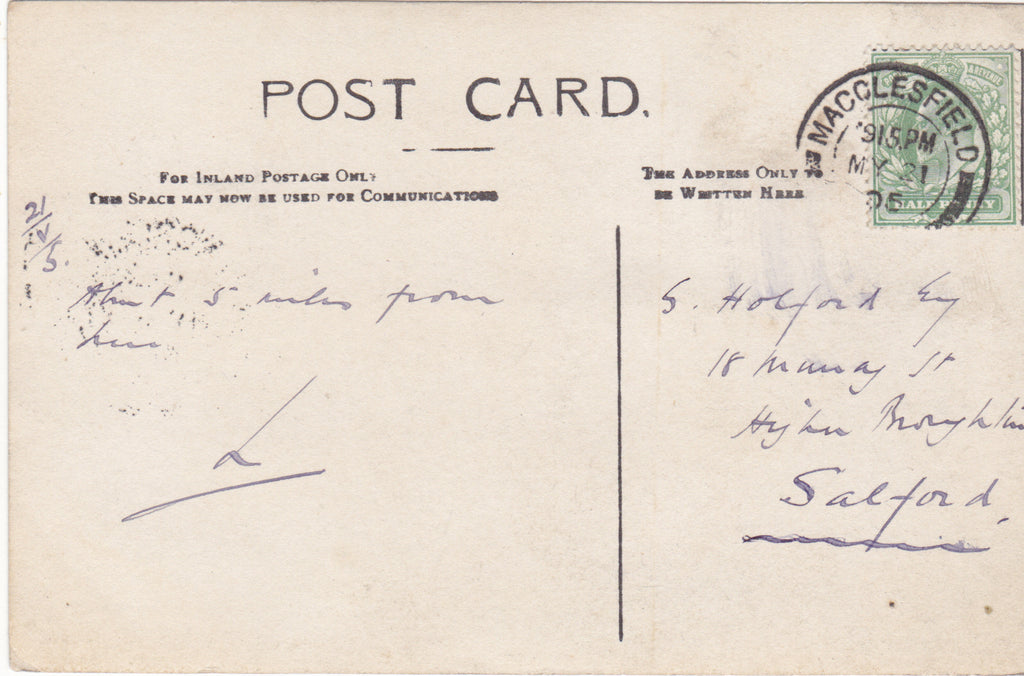 POST CARD.
FOR INLAND POSTAGE ONLY
THIS SPACE MAY NOW BE USED FOR COMMUNICATIONS
THE ADDRESS ONLY TO
BE WRITTEN HERE
MACCLESFIELD
9 15 PM
MY 21
05
HALFPENNY
21/V/5.
About 5 miles from
here
L
S. Holford Esq
18 Murray St
Higher Broughton
Salford.